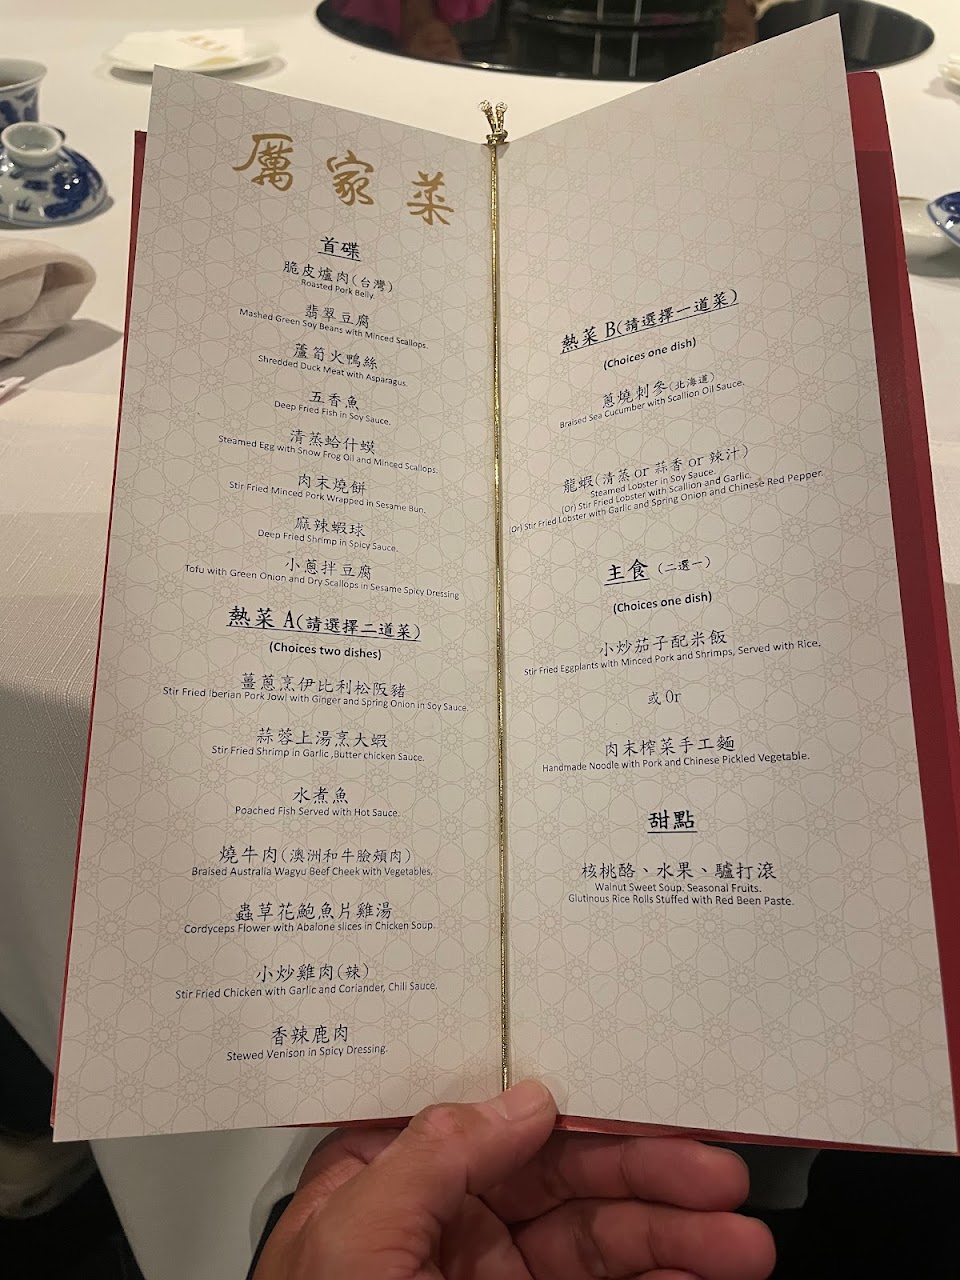 厲家菜
首碟
脆皮爐肉(台灣)
Roasted Pork Belly.
翡翠豆腐
Mashed Green Soy Beans with Minced Scallops.
蘆筍火鴨絲
Shredded Duck Meat with Asparagus.
五香魚
Deep Fried Fish in Soy Sauce.
清蒸蛤什蟆
Steamed Egg with Snow Frog Oil and Minced Scallops.
肉末燒餅
Stir Fried Minced Pork Wrapped in Sesame Bun.
麻辣蝦球
Deep Fried Shrimp in Spicy Sauce.
小蔥拌豆腐
Tofu with Green Onion and Dry Scallops in Sesame Spicy Dressing
熱菜 A(請選擇二道菜)
(Choices two dishes)
薑蔥烹伊比利松阪豬
Stir Fried Iberian Pork Jowl with Ginger and Spring Onion in Soy Sauce.
蒜蓉上湯烹大蝦
Stir Fried Shrimp in Garlic ,Butter chicken Sauce.
水煮魚
Poached Fish Served with Hot Sauce.
燒牛肉(澳洲和牛臉頰肉)
Braised Australia Wagyu Beef Cheek with Vegetables.
蟲草花鮑魚片雞湯
Cordyceps Flower with Abalone slices in Chicken Soup.
小炒雞肉(辣)
Stir Fried Chicken with Garlic and Coriander, Chili Sauce.
香辣鹿肉
Stewed Venison in Spicy Dressing.
熱菜 B(請選擇一道菜)
(Choices one dish)
蔥燒刺參(北海道)
Braised Sea Cucumber with Scallion Oil Sauce.
龍蝦(清蒸 or 蒜香 or 辣汁)
Steamed Lobster in Soy Sauce.
(Or) Stir Fried Lobster with Scallion and Garlic.
(Or) Stir Fried Lobster with Garlic and Spring Onion and Chinese Red Pepper.
主食 (二選一)
(Choices one dish)
小炒茄子配米飯
Stir Fried Eggplants with Minced Pork and Shrimps, Served with Rice.
或 Or
肉末榨菜手工麵
Handmade Noodle with Pork and Chinese Pickled Vegetable.
甜點
核桃酪、水果、驢打滾
Walnut Sweet Soup. Seasonal Fruits.
Glutinous Rice Rolls Stuffed with Red Been Paste.